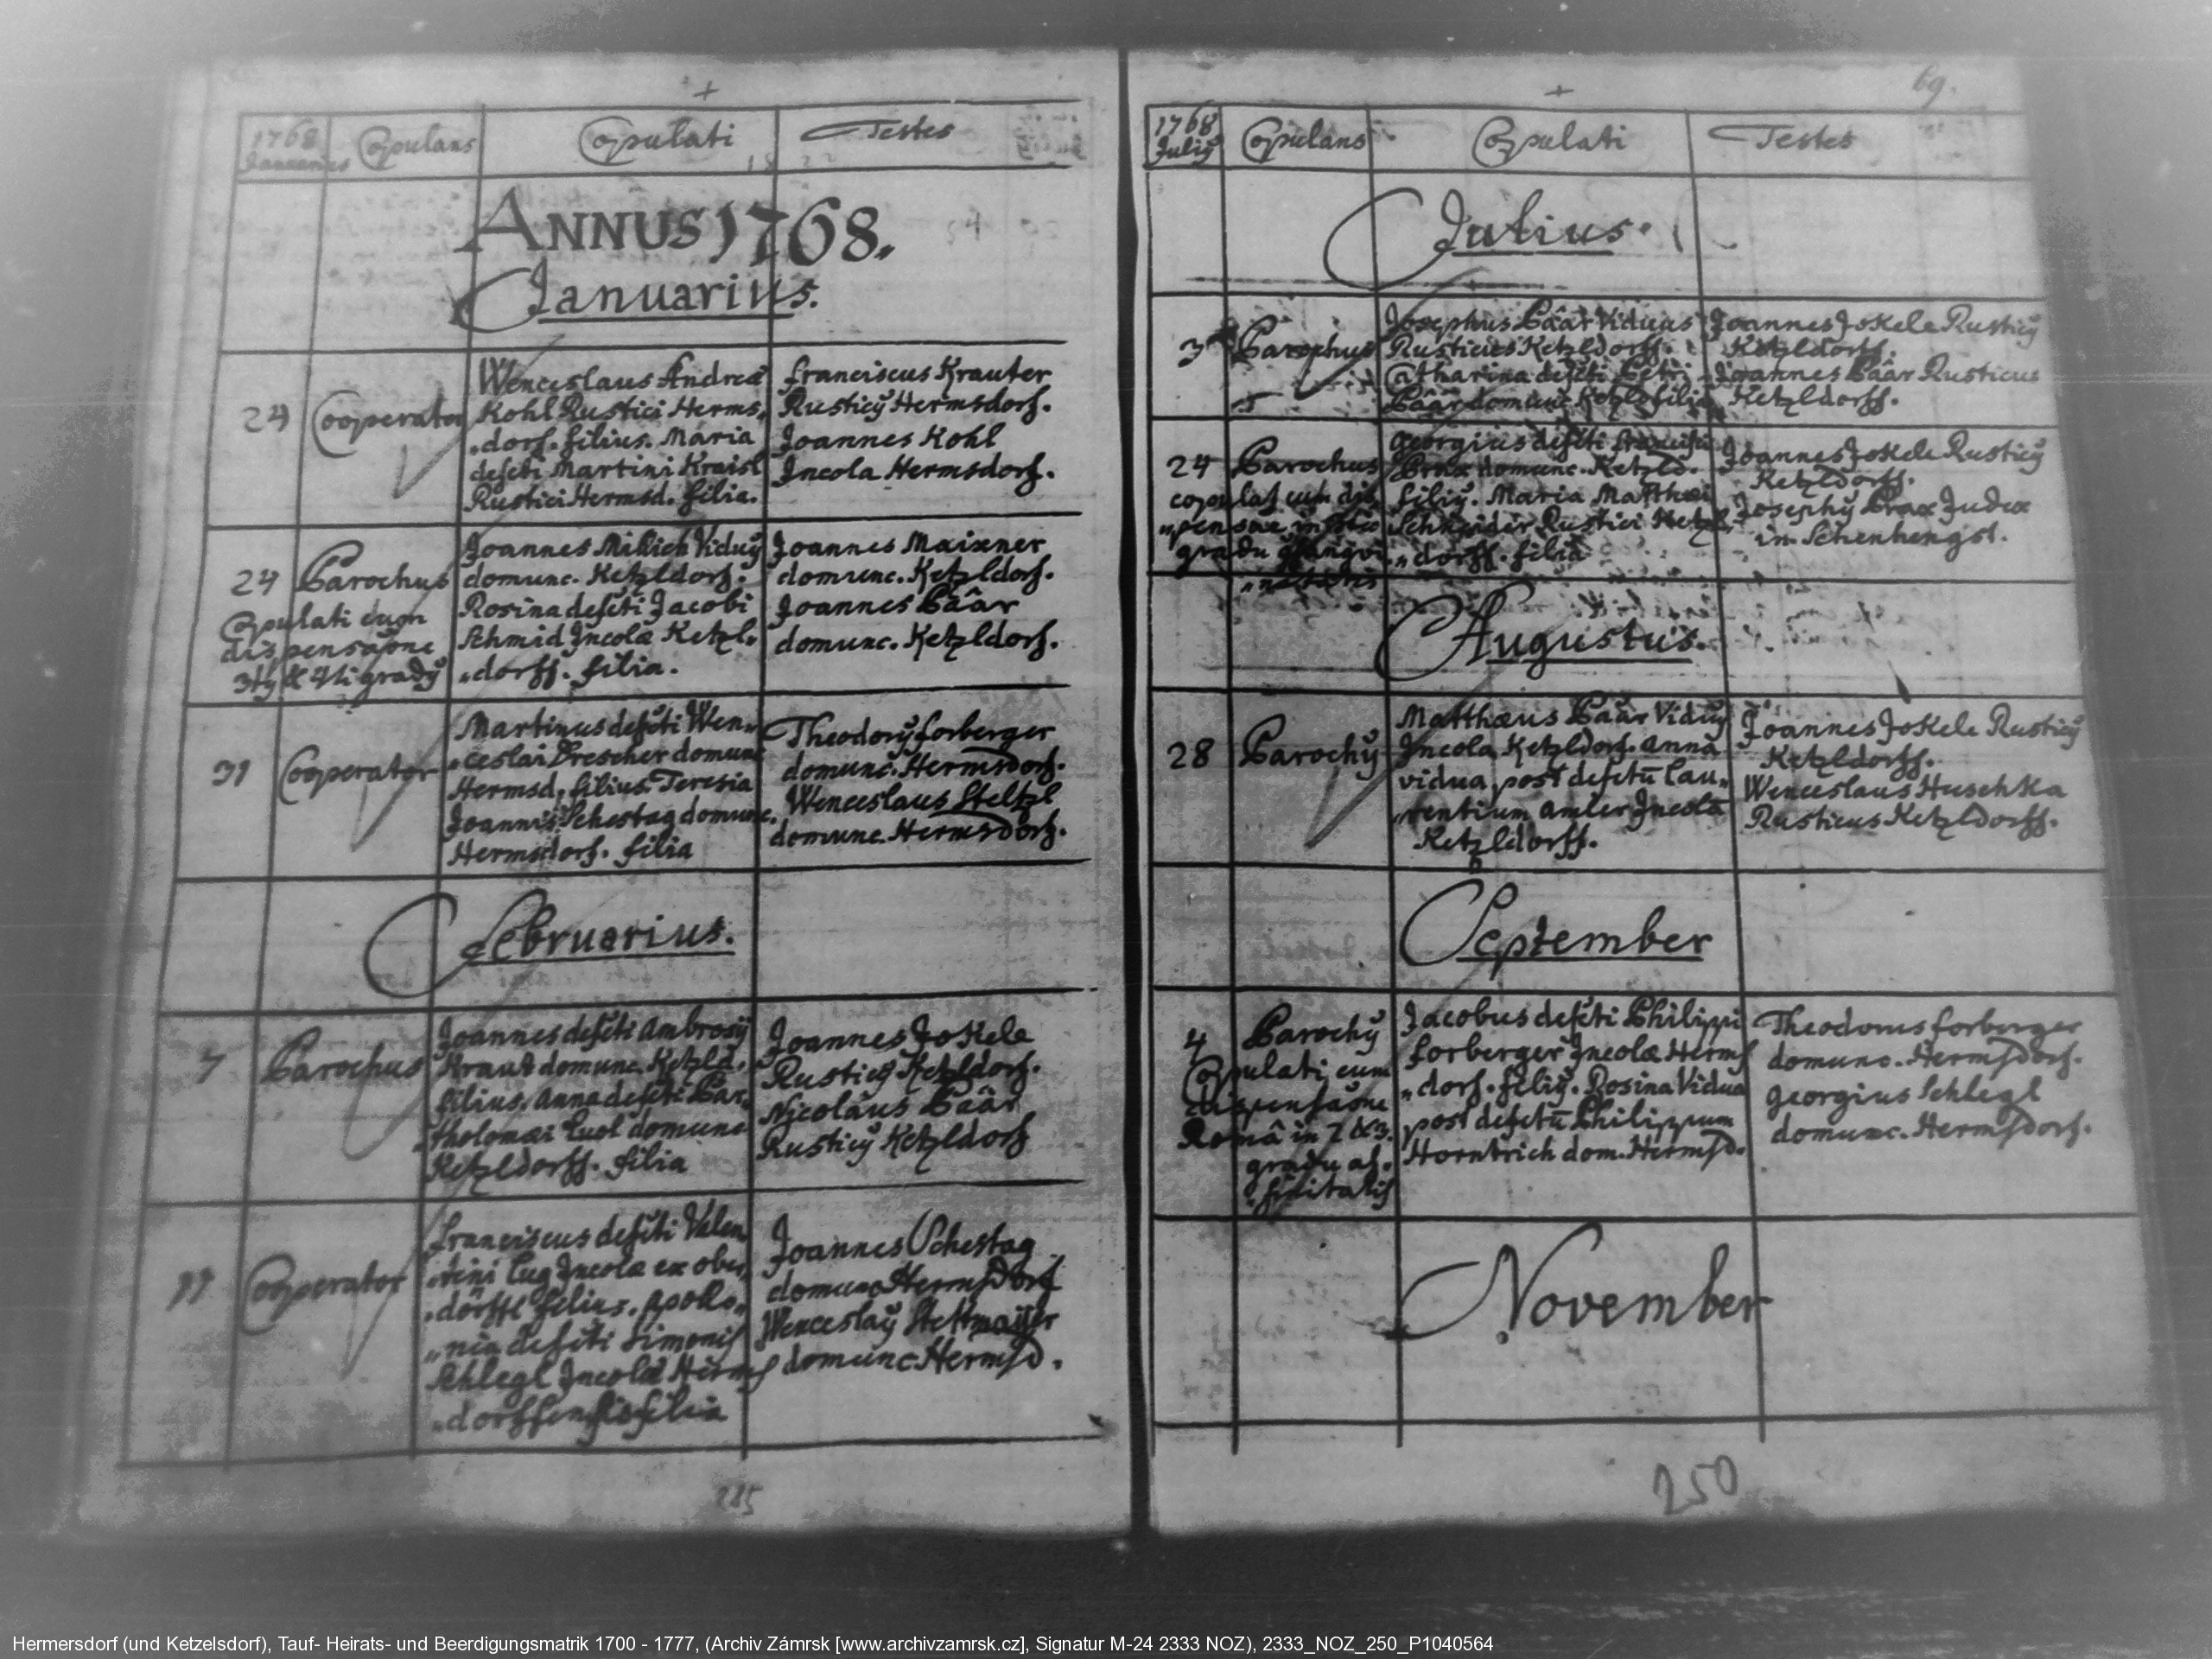 1768 Januarius
Copulans
Copulati
Testes
ANNUS 1768.
Januarius.
24
Cooperator
Wenceslaus Andreæ
Kohl Rustici Herms„
„dorf. filius. Maria
defcti Martini Kraisl
Rustici Hermsd. filia.
Franciscus Krauter
Rusticÿ Hermsdorf.
Joannes Kohl
Incola Hermsdorf.
24
Parochus
Copulati cum
dispensaõne
3tÿ & 4ti gradÿ
Joannes Milich Viduÿ
domunc. Ketzldorf.
Rosina defcti Jacobi
Schmid Incolæ Ketzl„
„dorff. filia.
Joannes Maixner
domunc. Ketzldorf.
Joannes Päär
domunc. Ketzldorf.
31
Cooperator
Martinus defcti Wen„
„ceslai Drescher domunc
Hermsd. filius. Teresia
Joannis Schestag domunc.
Hermsdorf. filia
Theodorÿ Forberger
domunc. Hermsdorf.
Wenceslaus Steltzl
domunc. Hermsdorf.
Februarius.
7
Parochus
Joannes defcti Ambrosÿ
Kraut domunc. Ketzld.
filius. Anna defcti Bar„
„tholomæi Luol domunc
Ketzldorff. filia
Joannes Jokele
Rusticÿ Ketzldorf.
Nicolaus Päär
Rusticÿ Ketzldorf
11
Cooperator
Franciscus defcti Valen
„tini Lug Incolæ ex ober„
„dörffl filius. Apollo„
„nia defcti Simonis
Schlegl Incolæ Herms
„dorffensis filia
Joannes Schestag
domunc Hermsdorf
Wenceslaÿ Stettmaÿer
domunc. Hermsd.
285
69.
1768 Julÿ
Copulans
Copulati
Testes
Julius.
3
Parochus
Josephus Päär Viduus
Rusticus Ketzldorff.
Catharina defcti Petri
Päär domunc Ketzld filia
Joannes Jokele Rusticÿ
Ketzldorff.
Joannes Päär Rusticus
Ketzldorff.
24
Parochus
copulat cum dis
„pensae in
gradu
Georgius defcti Francisci
Brax domunc. Ketzld.
filiÿ. Maria Matthæi
Schneider Rustici Ketzl„
„dorff. filia
Joannes Jokele Rusticÿ
Ketzldorff.
Josephÿ Brax Judex
in Schenhengst.
Augustus.
28
Parochÿ
Matthæus Päär Viduÿ
Incola Ketzldorf. Anna
vidua post defctũ Lau„
„rentium Amler Incola
Ketzldorff.
Joannes Jokele Rusticÿ
Ketzldorff.
Wenceslaus Huschka
Rusticus Ketzldorff.
September
4
Parochÿ
Copulati cum
dispensaõne
Româ in 2 & 3.
gradu af„
„finitatis
Jacobus defcti Philippi
Forberger Incolæ Herms
„dorf. filiÿ. Rosina Vidua
post defctũ Philippum
Horntrich dom. Hermsd.
Theodorus Forberger
domunc. Hermsdorf.
Georgius Schlegl
domunc. Hermsdorf.
November
250
Hermersdorf (und Ketzelsdorf), Tauf- Heirats- und Beerdigungsmatrik 1700 - 1777, (Archiv Zámrsk [www.archivzamrsk.cz], Signatur M-24 2333 NOZ), 2333_NOZ_250_P1040564